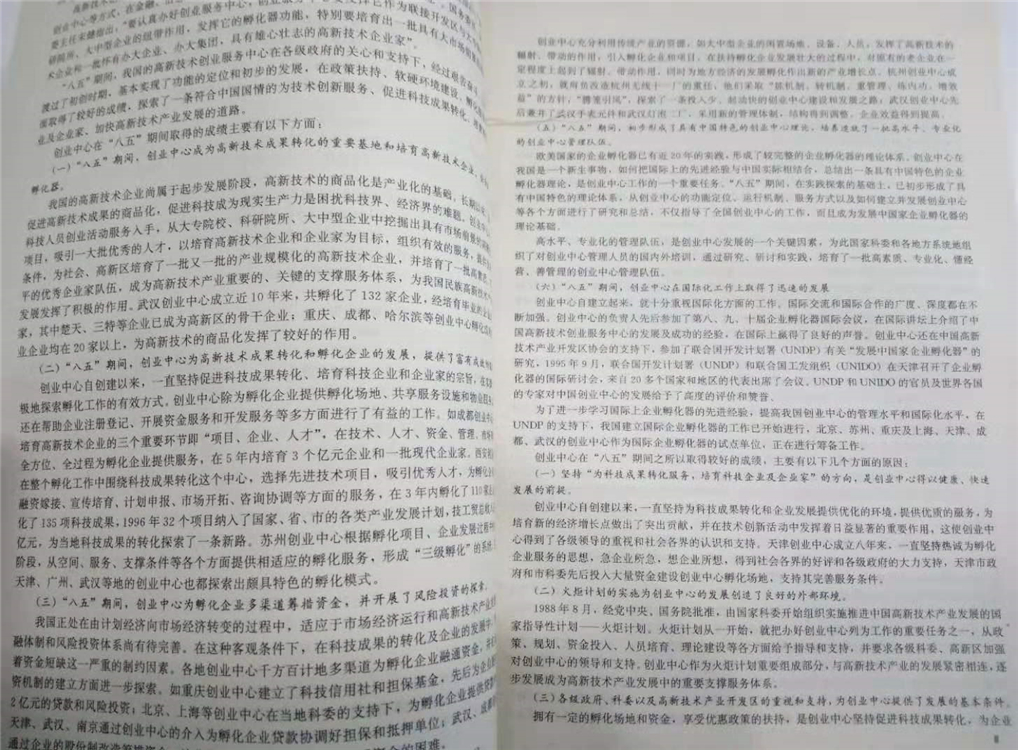 创业中心等方式，在金融、信
要主任宋健指出，“要认真办好创业服务中心，创业服务中心
研院所、大中型企业的纽带作用，发挥它的孵化器功能，特别要培育出一批具有大市场
术企业和一批怀有办大企业、办大集团，具有雄心壮志的高新技术企业家”。
“八五”期间，我国的高新技术创业服务中心在各级政府的关心和支持下，经过艰苦奋
渡过了初创时期，基本实现了功能的定位和初步的发展，在政策扶持、软硬环境建设、孵化
面取得了较好的成绩，探索了一条符合中国国情的为技术创新服务、促进科技成果转化、
业及企业家、加快高新技术产业发展的道路。
创业中心在“八五”期间取得的成绩主要有以下方面：
(一)“八五”期间，创业中心成为高新技术成果转化的重要基地和培育高新技术企业、
孵化器。
我国的高新技术企业尚属于起步发展阶段，高新技术的商品化是产业化的基础，长期以
促进高新技术成果的商品化，促进科技成为现实生产力是困扰科技界、经济界的难题，创业
科技人员创业活动服务入手，从大专院校、科研院所、大中型企业中挖掘出具有市场前景的
项目，吸引一大批优秀的人才，以培育高新技术企业和企业家为目标，组织有效的服务，
条件，为社会、高新区培育了一批又一批的产业规模化的高新技术企业，并培育了一批高素
平的优秀企业家队伍，成为高新技术产业重要的、关键的支撑服务体系，为我国民族高新技术
发展发挥了积极的作用。武汉创业中心成立近 10 年来，共孵化了 132 家企业，经培育毕业的企
家，其中楚天、三特等企业已成为高新区的骨干企业；重庆、成都、哈尔滨等创业中心孵化
业企业均在 20 家以上，为高新技术的商品化发挥了较好的作用。
(二)“八五”期间，创业中心为高新技术成果转化和孵化企业的发展，提供了富有成效的
创业中心自创建以来，一直坚持促进科技成果转化、培育科技企业和企业家的宗旨，
极地探索孵化工作的有效方式。创业中心除为孵化企业提供孵化场地、共享服务设施和物业
还在帮助企业注册登记、开展资金服务和开发服务等多方面进行了有益的工作。如成都创业
培育高新技术企业的三个重要环节即“项目、企业、人才”，在技术、人才、资金、管理、市场
全方位、全过程为孵化企业提供服务，在 5 年内培育 3 个亿元企业和一批现代企业家。西安
在整个孵化工作中围绕科技成果转化这个中心，选择先进技术项目，吸引优秀人才，为孵化企
融资嫁接、宣传培育、计划申报、市场开拓、咨询协调等方面的服务，在 3 年内孵化了 110 家
化了 135 项科技成果，1996 年 32 个项目纳入了国家、省、市的各类产业发展计划，技工贸总收入
亿元，为当地科技成果的转化探索了一条新路。苏州创业中心根据孵化项目、企业发展过程中
阶段，从空间、服务、支撑条件等各个方面提供相适应的孵化服务，形成“三级孵化”的系统
天津、广州、武汉等地的创业中心也都探索出颇具特色的孵化模式。
(三)“八五”期间，创业中心为孵化企业多渠道筹措资金，并开展了风险投资的探索。
我国正处在由计划经济向市场经济转变的过程中，适应于市场经济运行和高新技术产业
融体制和风险投资体系尚有待完善。在这种客观条件下，在科技成果的转化及企业的发展中，
着资金短缺这一严重的制约因素。各地创业中心千方百计地多渠道为孵化企业融通资金，并
资机制的建立方面进一步探索。如重庆创业中心建立了科技信用社和担保基金，先后为企业
2 亿元的贷款和风险投资；北京、上海等创业中心在当地科委的支持下，为孵化企业提供贷
天津、武汉、南京通过创业中心的介入为孵化企业贷款协调好担保和抵押单位；武汉、成都
创业中心充分利用传统产业的资源，如大中型企业的闲置场地、设备、人员，发挥了高新技术的
辐射、带动的作用，引入孵化企业和项目，在扶持孵化企业发展壮大的过程中，对原有的老企业在一
定程度上起到了辐射、带动作用，同时为地方经济的发展孵化作出新的产业增长点。杭州创业中心成
立之初，就肩负改造杭州无线十一厂的重任，他们采取“抓机制，转机制，重管理，练内功，增效
益”的方针，“腾笼引凤”，探索了一条投入少、起动快的创业中心建设和发展之路；武汉创业中心先
后兼并了武汉手表元件和武汉灯泡二厂，采用新的管理体制，结构得到调整，企业效益得到提高。
(五)“八五”期间，初步形成了具有中国特色的创业中心理论，培养造就了一批高水平、专业化
的创业中心管理队伍。
欧美国家的企业孵化器已有近 20 年的实践，形成了较完整的企业孵化器的理论体系。创业中心在
我国是一个新生事物，如何把国际上的先进经验与中国实际相结合，总结出一条具有中国特色的企业
孵化器理论，是创业中心工作的一个重要任务。“八五”期间，在实践探索的基础上，已初步形成了具
有中国特色的理论体系，从创业中心的功能定位、运行机制、服务方式以及如何建立并发展创业中心
等各个方面进行了研究和总结，不仅指导了全国创业中心的工作，而且成为发展中国家企业孵化器的
理论基础。
高水平、专业化的管理队伍，是创业中心发展的一个关键因素，为此国家科委和各地方系统地组
织了对创业中心管理人员的国内外培训，通过研究、研讨和实践，培育了一批高素质、专业化、懂经
营、善管理的创业中心管理队伍。
(六)“八五”期间，创业中心在国际化工作上取得了迅速的发展
创业中心自建立起来，就十分重视国际化方面的工作。国际交流和国际合作的广度、深度都在不
断加强。创业中心的负责人先后参加了第八、九、十届企业孵化器国际会议，在国际讲坛上介绍了中
国高新技术创业服务中心的发展及成功的经验，在国际上赢得了良好的声誉。创业中心还在中国高新
技术产业开发区协会的支持下，参加了联合国开发计划署（UNDP）有关“发展中国家企业孵化器”的
研究，1995 年 9 月，联合国开发计划署（UNDP）和联合国工发组织（UNIDO）在天津召开了企业孵
化器的国际研讨会，来自 20 多个国家和地区的代表出席了会议。UNDP 和 UNIDO 的官员及世界各国
的专家对中国创业中心的发展给予了高度的评价和赞誉。
为了进一步学习国际上企业孵化器的先进经验，提高我国创业中心的管理水平和国际化水平，在
UNDP 的支持下，我国建立国际企业孵化器的工作已开始进行，北京、苏州、重庆及上海、天津、成
都、武汉的创业中心作为国际企业孵化器的试点单位，正在进行筹备工作。
创业中心在“八五”期间之所以取得较好的成绩，主要有以下几个方面的原因：
(一) 坚持“为科技成果转化服务，培育科技企业及企业家”的方向，是创业中心得以健康、快速
发展的前提。
创业中心自创建以来，一直坚持为科技成果转化和企业发展提供优化的环境，提供优质的服务，为
培育新的经济增长点做出了突出贡献，并在技术创新活动中发挥着日益显著的重要作用，这使创业中
心得到了各级领导的重视和社会各界的认识和支持。天津创业中心成立八年来，一直坚持热诚为孵化
企业服务的思想，急企业所急，想企业所想，得到社会各界的好评和各级政府的大力支持，天津市政
府和市科委先后投入大量资金建设创业中心孵化场地，支持其完善服务条件。
(二) 火炬计划的实施为创业中心的发展创造了良好的外部环境。
1988 年 8 月，经党中央、国务院批准，由国家科委开始组织实施推进中国高新技术产业发展的国
家指导性计划——火炬计划。火炬计划从一开始，就把办好创业中心列为工作的重要任务之一，从政
策、规划、资金投入、人员培育、理论建设等各方面给予指导和支持，并要求各级科委、高新区加强
对创业中心的领导和支持。创业中心作为火炬计划重要组成部分，与高新技术产业的发展紧密相连，逐
步发展成为高新技术产业发展中的重要支撑服务体系。
(三) 各级政府、科委以及高新技术产业开发区的重视和支持，为创业中心提供了发展的基本条件。
拥有一定的孵化场地和资金，享受优惠政策的扶持，是创业中心坚持促进科技成果转化，为企业
8